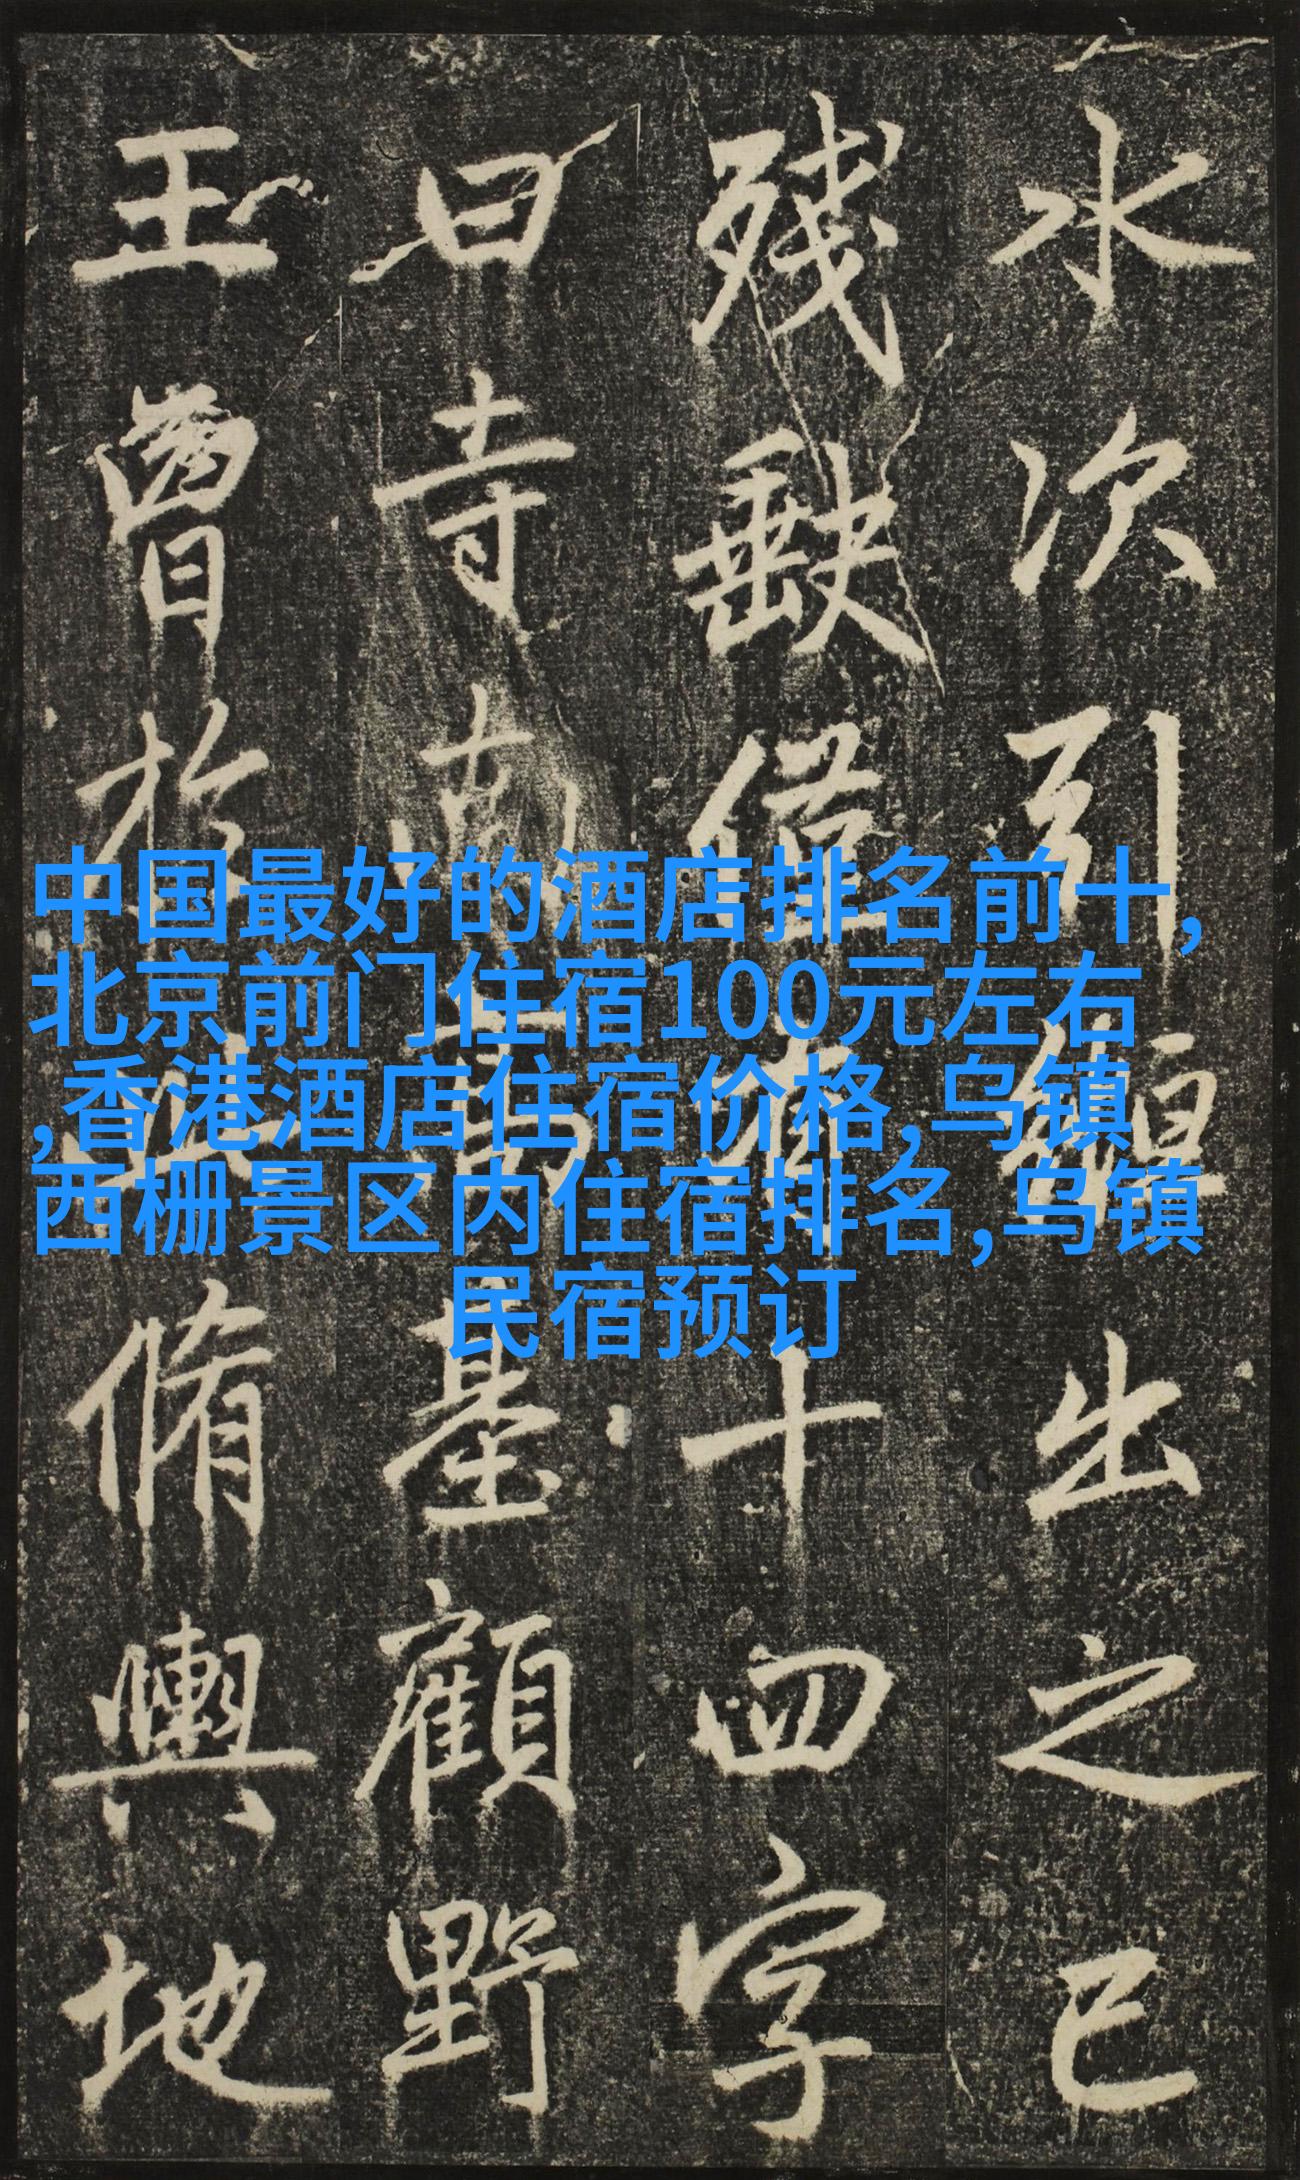 中国最好的酒店排名前十,
北京前门住宿100元左右
,香港酒店住宿价格,乌镇
西栅景区内住宿排名,乌镇
民宿预订
水次引纜出之已
殘缺僅十四字
曰寺南高基顧野
王曾於此脩輿地